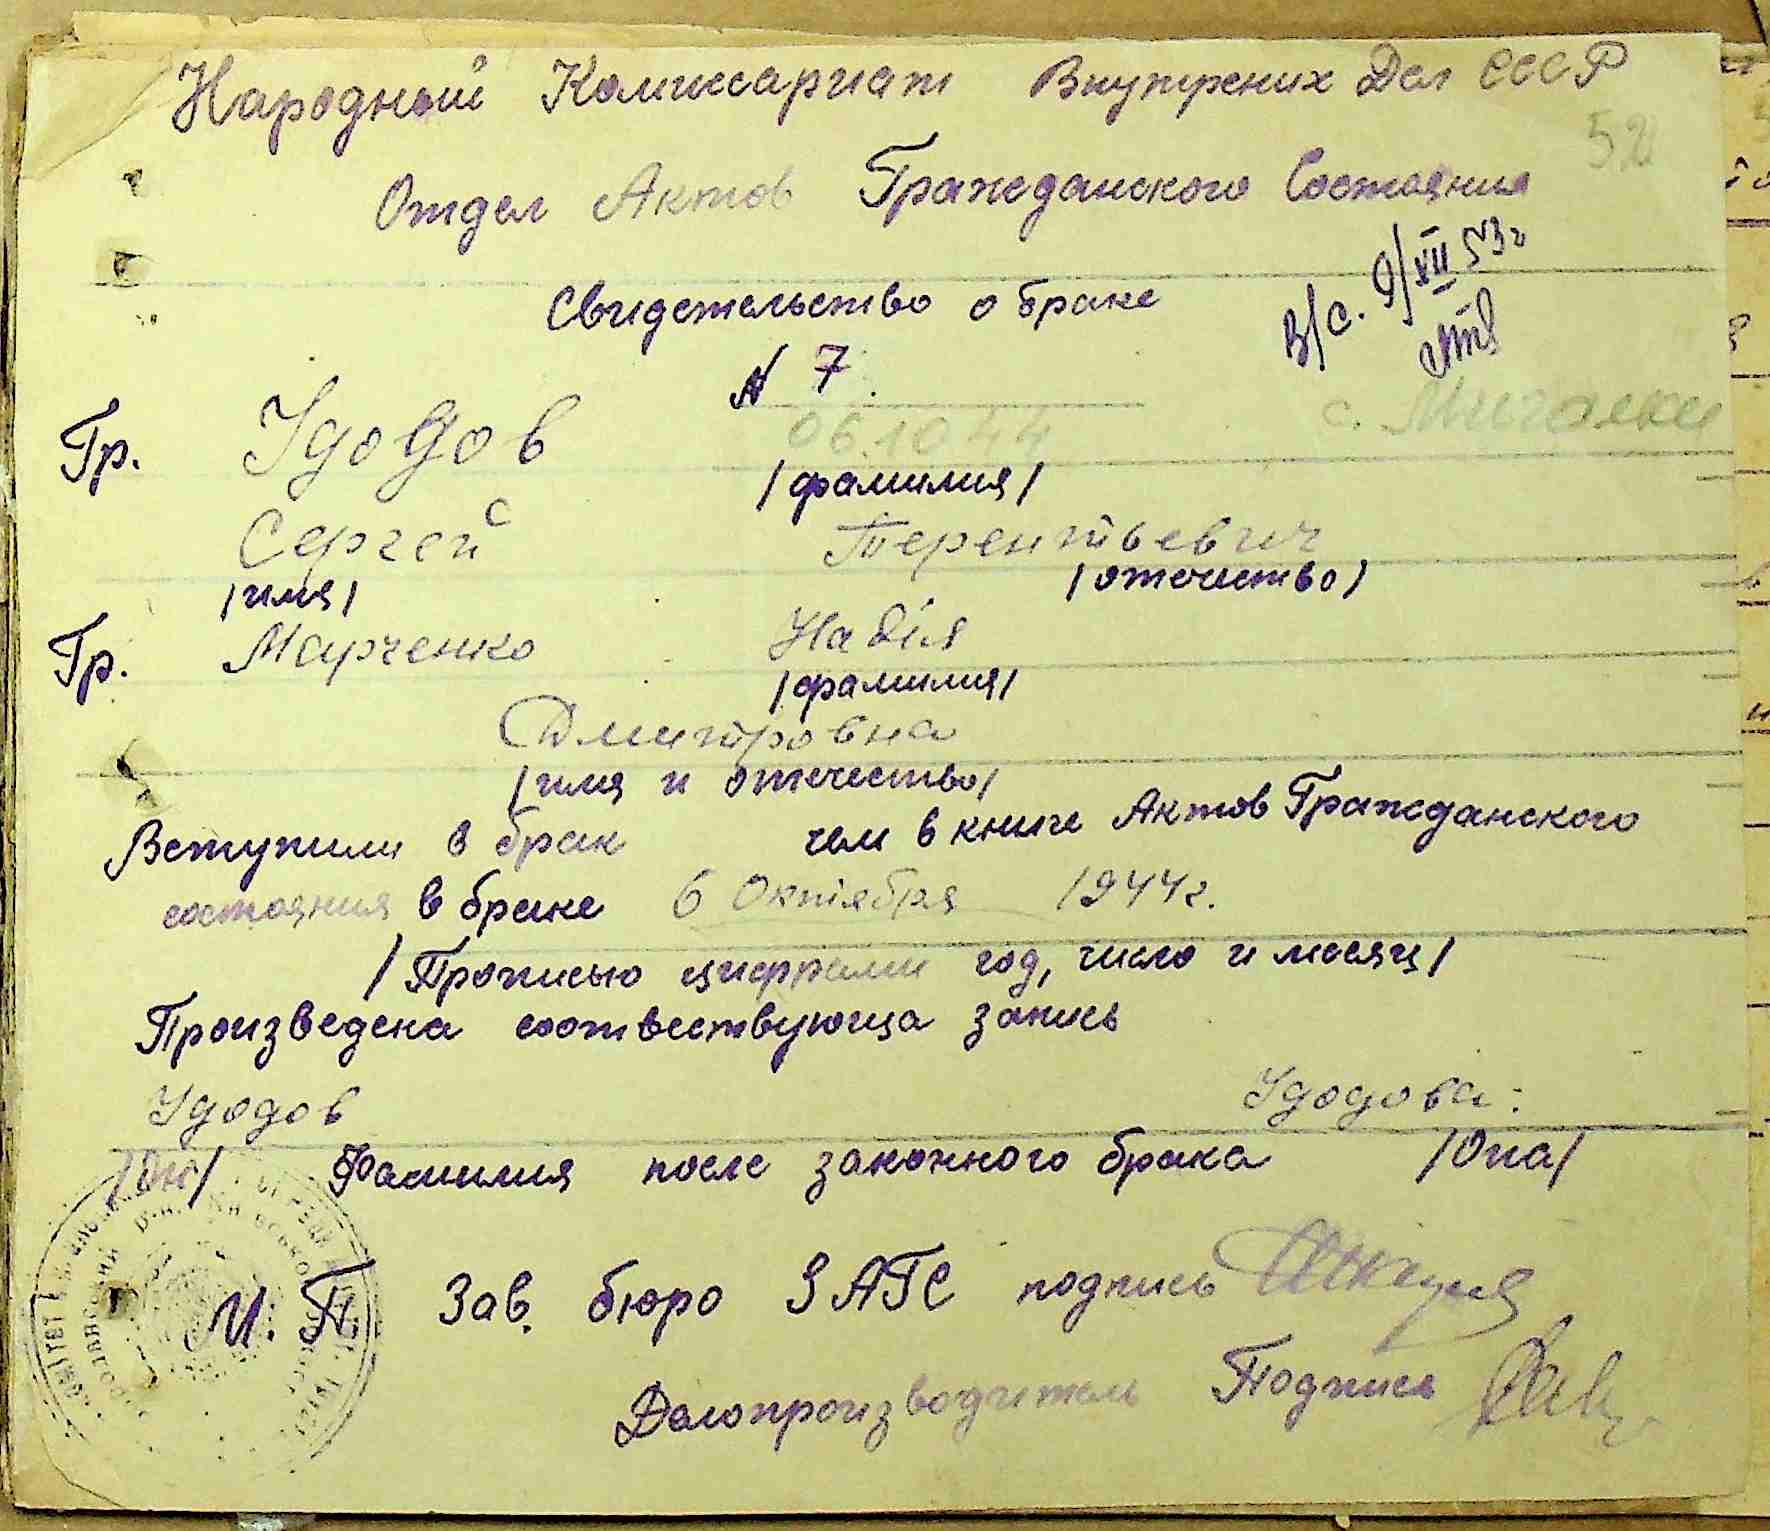 Народный Комиссариат Внутрених Дел СССР
52
Отдел Актов Гражданского Состояния
в/с. 9/XII 53г
Свидетельство о браке
N 7.
06.10.44
с. Мигалки
Гр. Удодов
/фамилия/
Сергей Терентьевич
/имя/ /отечество/
Гр. Марченко Надія
/фамилия/
Дмитровна
/имя и отечество/
Вступили в брак чем в книге Актов Гражданского
состояния в браке 6 Октября 1944г.
/Прописью цифрами год, число и месяц/
Произведена соотвествующа запись
Удодов Удодова:
/Он/ Фамилия после законного брака /Она/
М. П. Зав. бюро ЗАГС подпись
Делопроизводитель Подпись